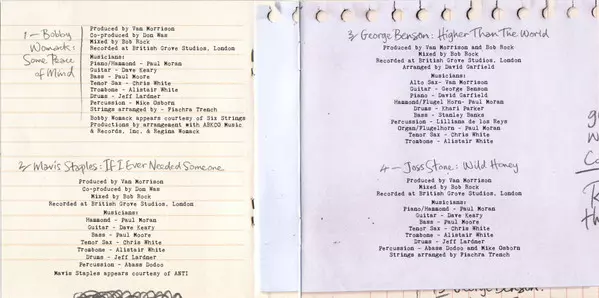 1 — Bobby
Womack:
Some Peace
of Mind
Produced by Van Morrison
Co-produced by Don Was
Mixed by Bob Rock
Recorded at British Grove Studios, London
Musicians:
Piano/Hammond - Paul Moran
Guitar - Dave Keary
Bass - Paul Moore
Tenor Sax - Chris White
Trombone - Alistair White
Drums - Jeff Lardner
Percussion - Mike Osborn
Strings arranged by - Fiachra Trench
Bobby Womack appears courtesy of Six Strings
Productions by arrangement with ABKCO Music
& Records, Inc. & Regina Womack
2/ Mavis Staples: If I Ever Needed Someone
Produced by Van Morrison
Co-produced by Don Was
Mixed by Bob Rock
Recorded at British Grove Studios, London
Musicians:
Hammond - Paul Moran
Guitar - Dave Keary
Bass - Paul Moore
Tenor Sax - Chris White
Trombone - Alistair White
Drums - Jeff Lardner
Percussion - Abass Dodoo
Mavis Staples appears courtesy of ANTI
3/ George Benson: Higher Than The World
Produced by Van Morrison and Bob Rock
Mixed by Bob Rock
Recorded at British Grove Studios, London
Arranged by David Garfield
Musicians:
Alto Sax- Van Morrison
Guitar - George Benson
Piano - David Garfield
Hammond/Flugel Horn- Paul Moran
Drums - Khari Parker
Bass - Stanley Banks
Percussion - Lilliana de los Reyes
Organ/Flugelhorn - Paul Moran
Tenor Sax - Chris White
Trombone - Alistair White
4 — Joss Stone: Wild Honey
Produced by Van Morrison
Mixed by Bob Rock
Recorded at British Grove Studios, London
Musicians:
Piano/Hammond - Paul Moran
Guitar - Dave Keary
Bass - Paul Moore
Tenor Sax - Chris White
Trombone - Alistair White
Drums - Jeff Lardner
Percussion - Abass Dodoo and Mike Osborn
Strings arranged by Fiachra Trench
George Benson: